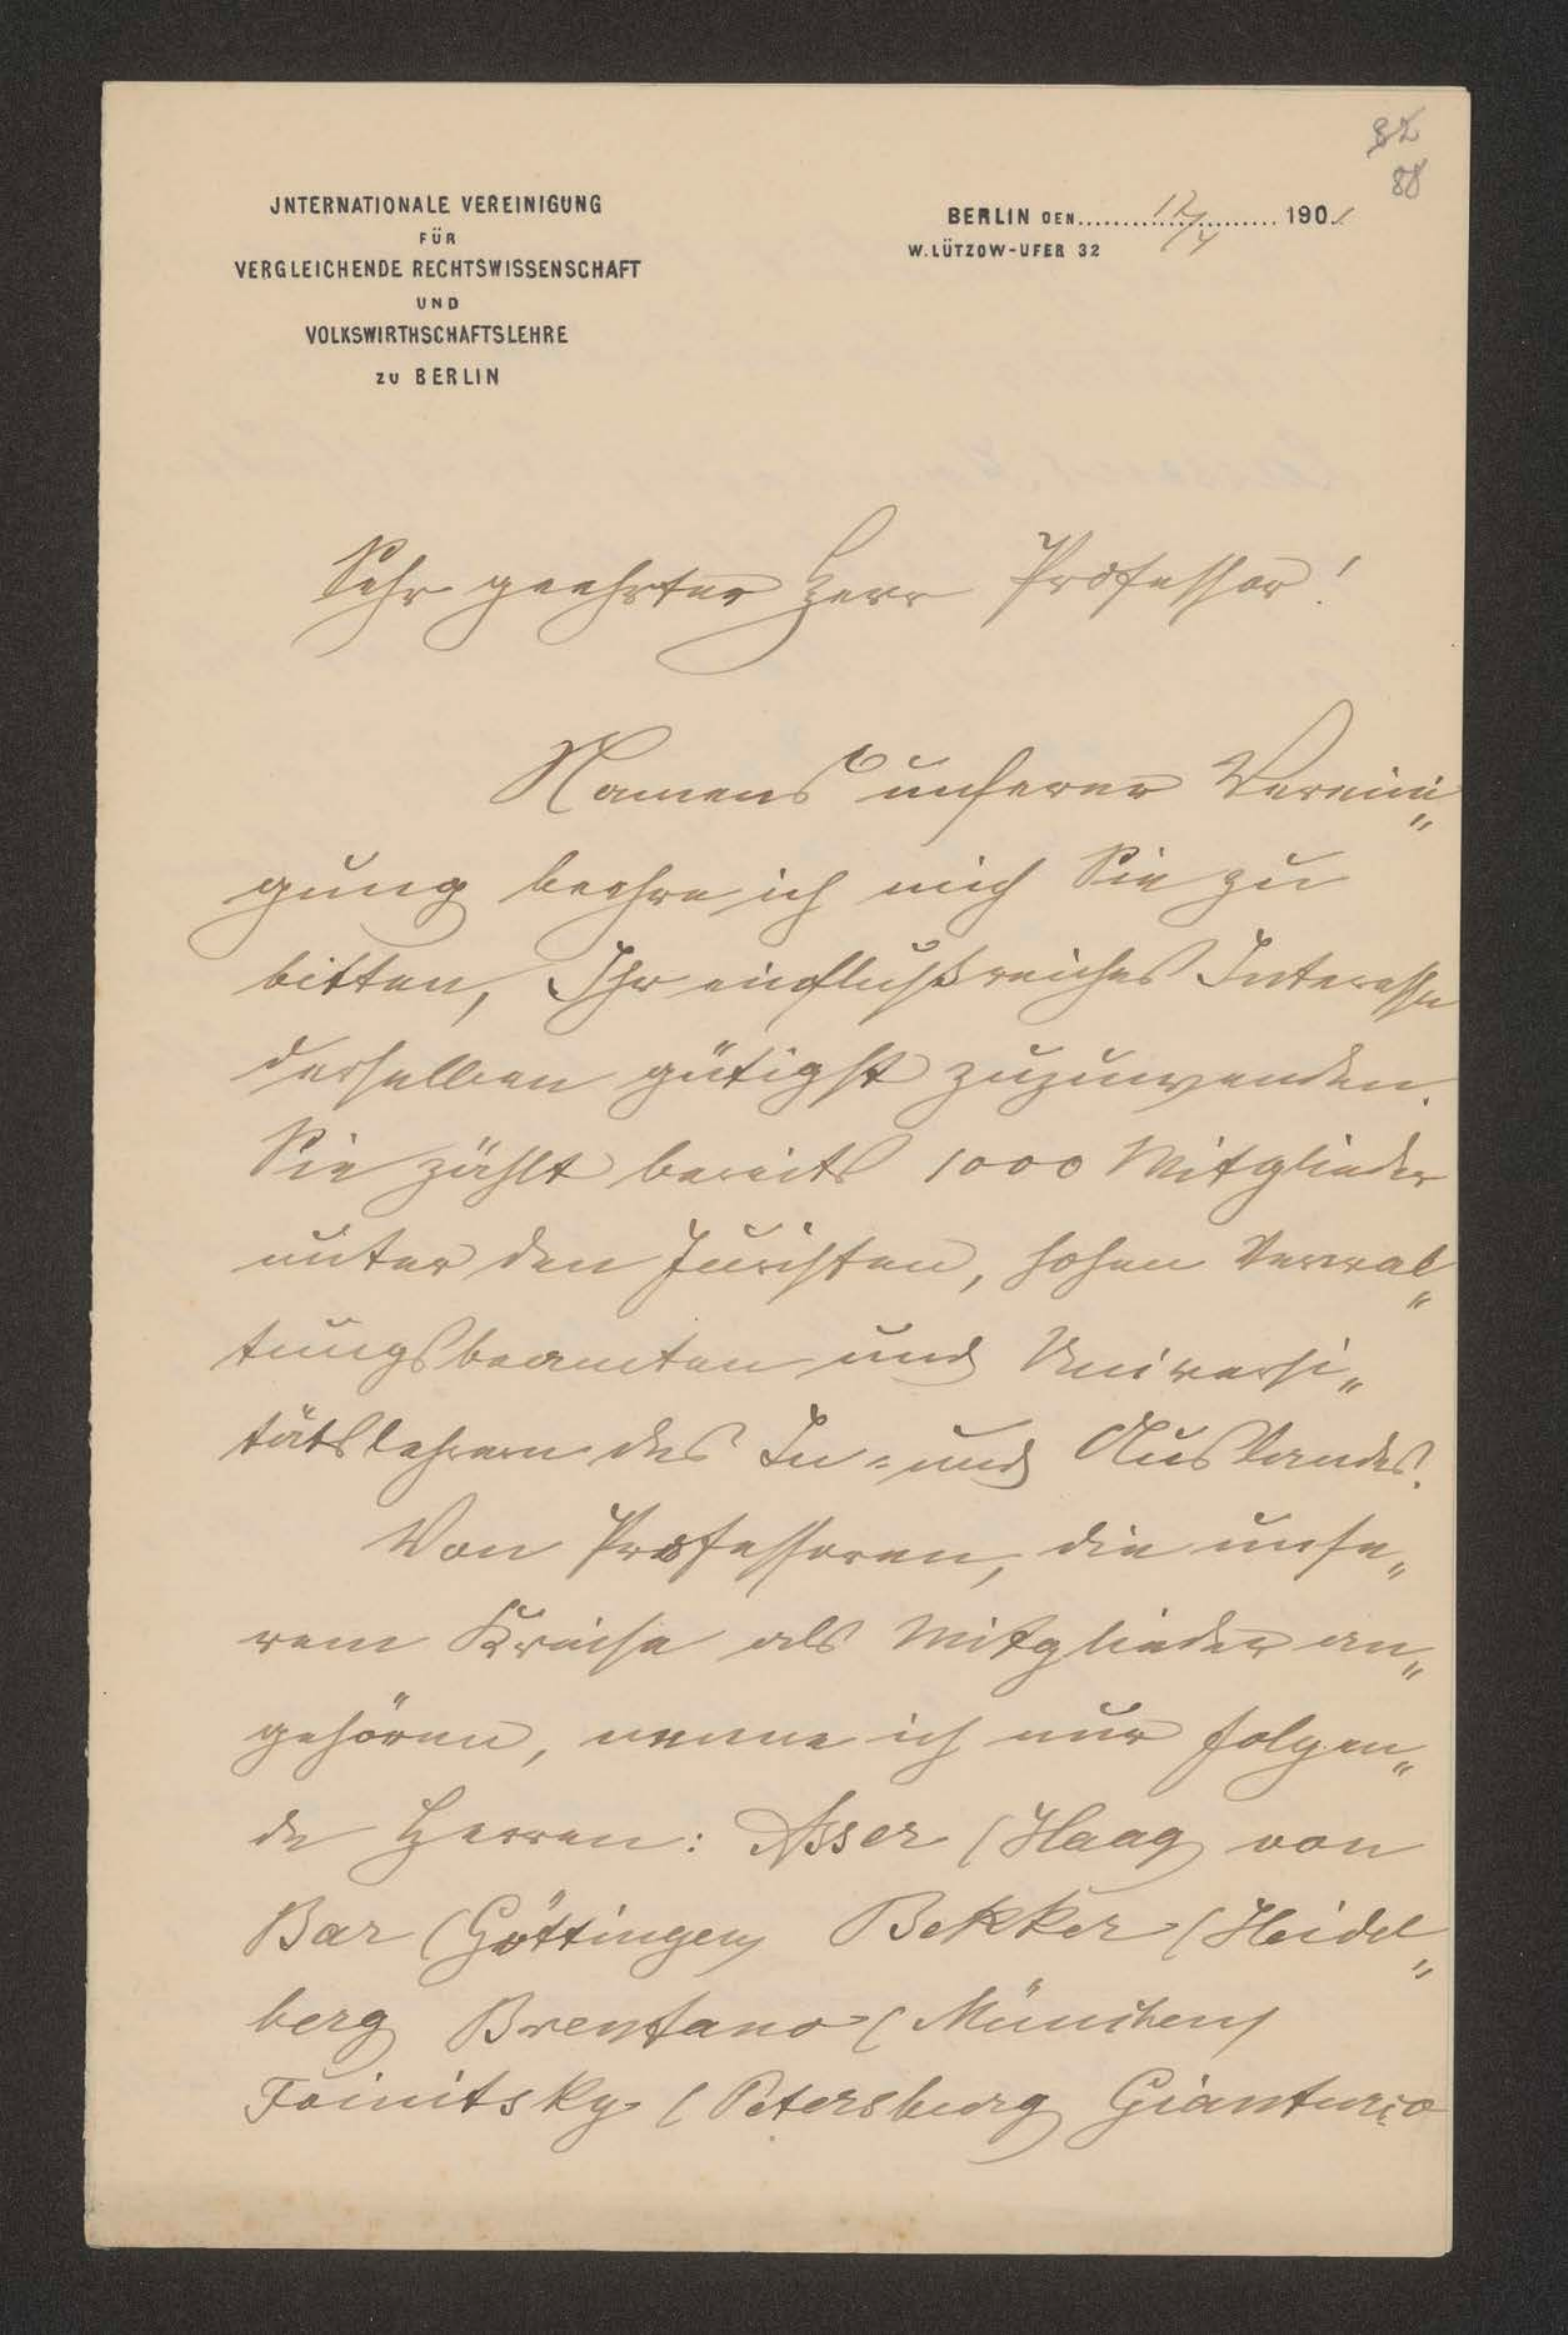 88
JNTERNATIONALE VEREINIGUNG
FÜR
VERGLEICHENDE RECHTSWISSENSCHAFT
UND
VOLKSWIRTHSCHAFTSLEHRE
zu BERLIN
BERLIN DEN 12/4 1901
W. LÜTZOW-UFER 32
Sehr geehrter Herr Professor!
Namens unserer Vereini„
gung beehre ich mich Sie zu
bitten, Ihr einflußreiches Interesse
derselben gütigst zuzuwenden.
Sie zählt bereits 1000 Mitglieder
unter den Juristen, hohen Verwal„
tungsbeamten und Universi„
tätslehrern des In- und Auslandes.
Von Professoren, die unse„
rem Kreise als Mitglieder an„
gehören, nenne ich nur folgen„
de Herren: Asser (Haag) von
Bar (Göttingen) Bekker (Heidel„
berg) Brentano (München)
Foinitsky (Petersburg) Gianturco